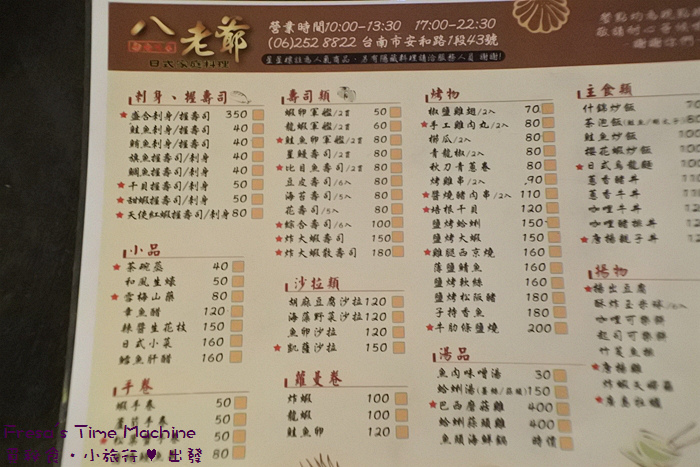 八老爺
日式家庭料理
營業時間10:00-13:30 17:00-22:30
(06)252 8822 台南市安和路1段43號
星星標註為人氣商品，另有隱藏料理請洽服務人員 謝謝!
敬請耐心等候
謝謝您們
刺身、握壽司
★盛合刺身/握壽司 350
鮭魚握壽司/刺身 40
鮪魚握壽司/刺身 40
旗魚握壽司/刺身 40
鯛魚握壽司/刺身 40
★干貝握壽司/刺身 50
★甜蝦握壽司/刺身 50
★天使紅蝦握壽司/刺身 80
小品
★茶碗蒸 40
和風生蠔 50
★雪梅山藥 80
章魚醋 120
辣醬生花枝 150
日式小菜 160
鱈魚肝醋 160
手卷
蝦手卷
壽司類
蝦卵軍艦/2貫 50
龍蝦軍艦/2貫 60
★鮭魚卵軍艦/2貫 80
星鰻壽司/2貫 80
★比目魚壽司/2貫 80
豆皮壽司/6入 80
海苔壽司/5入 80
花壽司/5入 80
★綜合壽司/6入 100
★炸大蝦壽司 150
★炸大蝦散壽司 180
沙拉類
胡麻豆腐沙拉 120
海藻野菜沙拉 120
魚卵沙拉 120
★凱薩沙拉 150
蘿蔓卷
炸蝦 100
龍蝦 100
鮭魚卵 120
烤物
椒鹽雞翅/2入 70
★手工雞肉丸/2入 80
櫛瓜/2入 80
青龍椒/2入 80
秋刀青蔥卷 80
烤雞串/2入 90
★醬燒豬肉串/2入 110
★培根干貝 120
鹽烤蛤蜊 150
鹽烤大蝦 150
★雞腿西京燒 160
薄鹽鯖魚 160
鹽烤軟絲 160
鹽烤松阪豬 180
子持香魚 180
★牛肋條鹽燒 200
湯品
魚肉味噌湯 30
蛤蜊湯(薑絲/蒜頭) 150
★巴西蘑菇雞 400
蛤蜊蒜頭雞 400
魚頭海鮮鍋 時價
主食類
什錦炒飯
茶泡飯
鮭魚炒飯
櫻花蝦炒飯
★日式烏龍麵
蔥香豬丼
蔥香牛丼
咖哩牛丼
咖哩豬排丼
★唐揚親子丼
揚物
★揚出豆腐
酥炸玉米球/6入
咖哩可樂餅
起司可樂餅
竹莢魚排
★唐揚雞
炸蝦天婦羅
Time Machine
小旅行♥出發